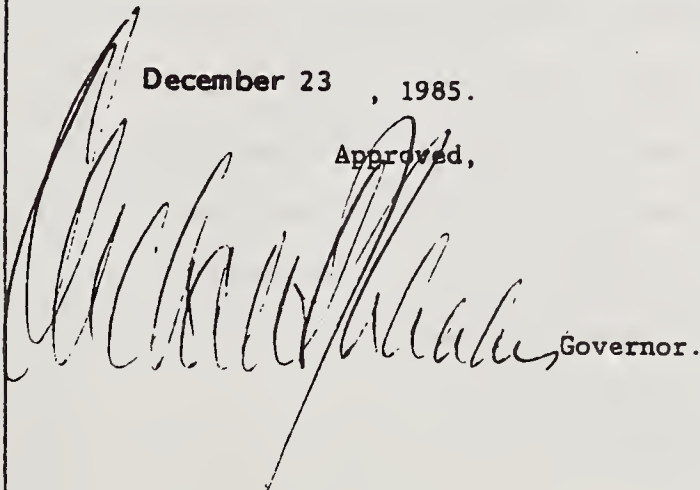 December 23 , 1985.
Approved,
Governor.